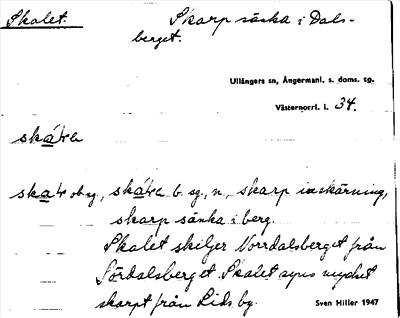 Skalet. Skarp sänka i Dals-
berget.
Ullångers sn, Ångermanl. s. doms. tg.
Västernorrl. l. 34.
skáłe
skał ob sg., skáłe b. sg., n., skarp inskärning,
skarp sänka i berg.
Skalet skiljer Norrdalsberget från
Sördalsberget. Skalet syns mycket
skarpt från Lids by.
Sven Hiller 1947